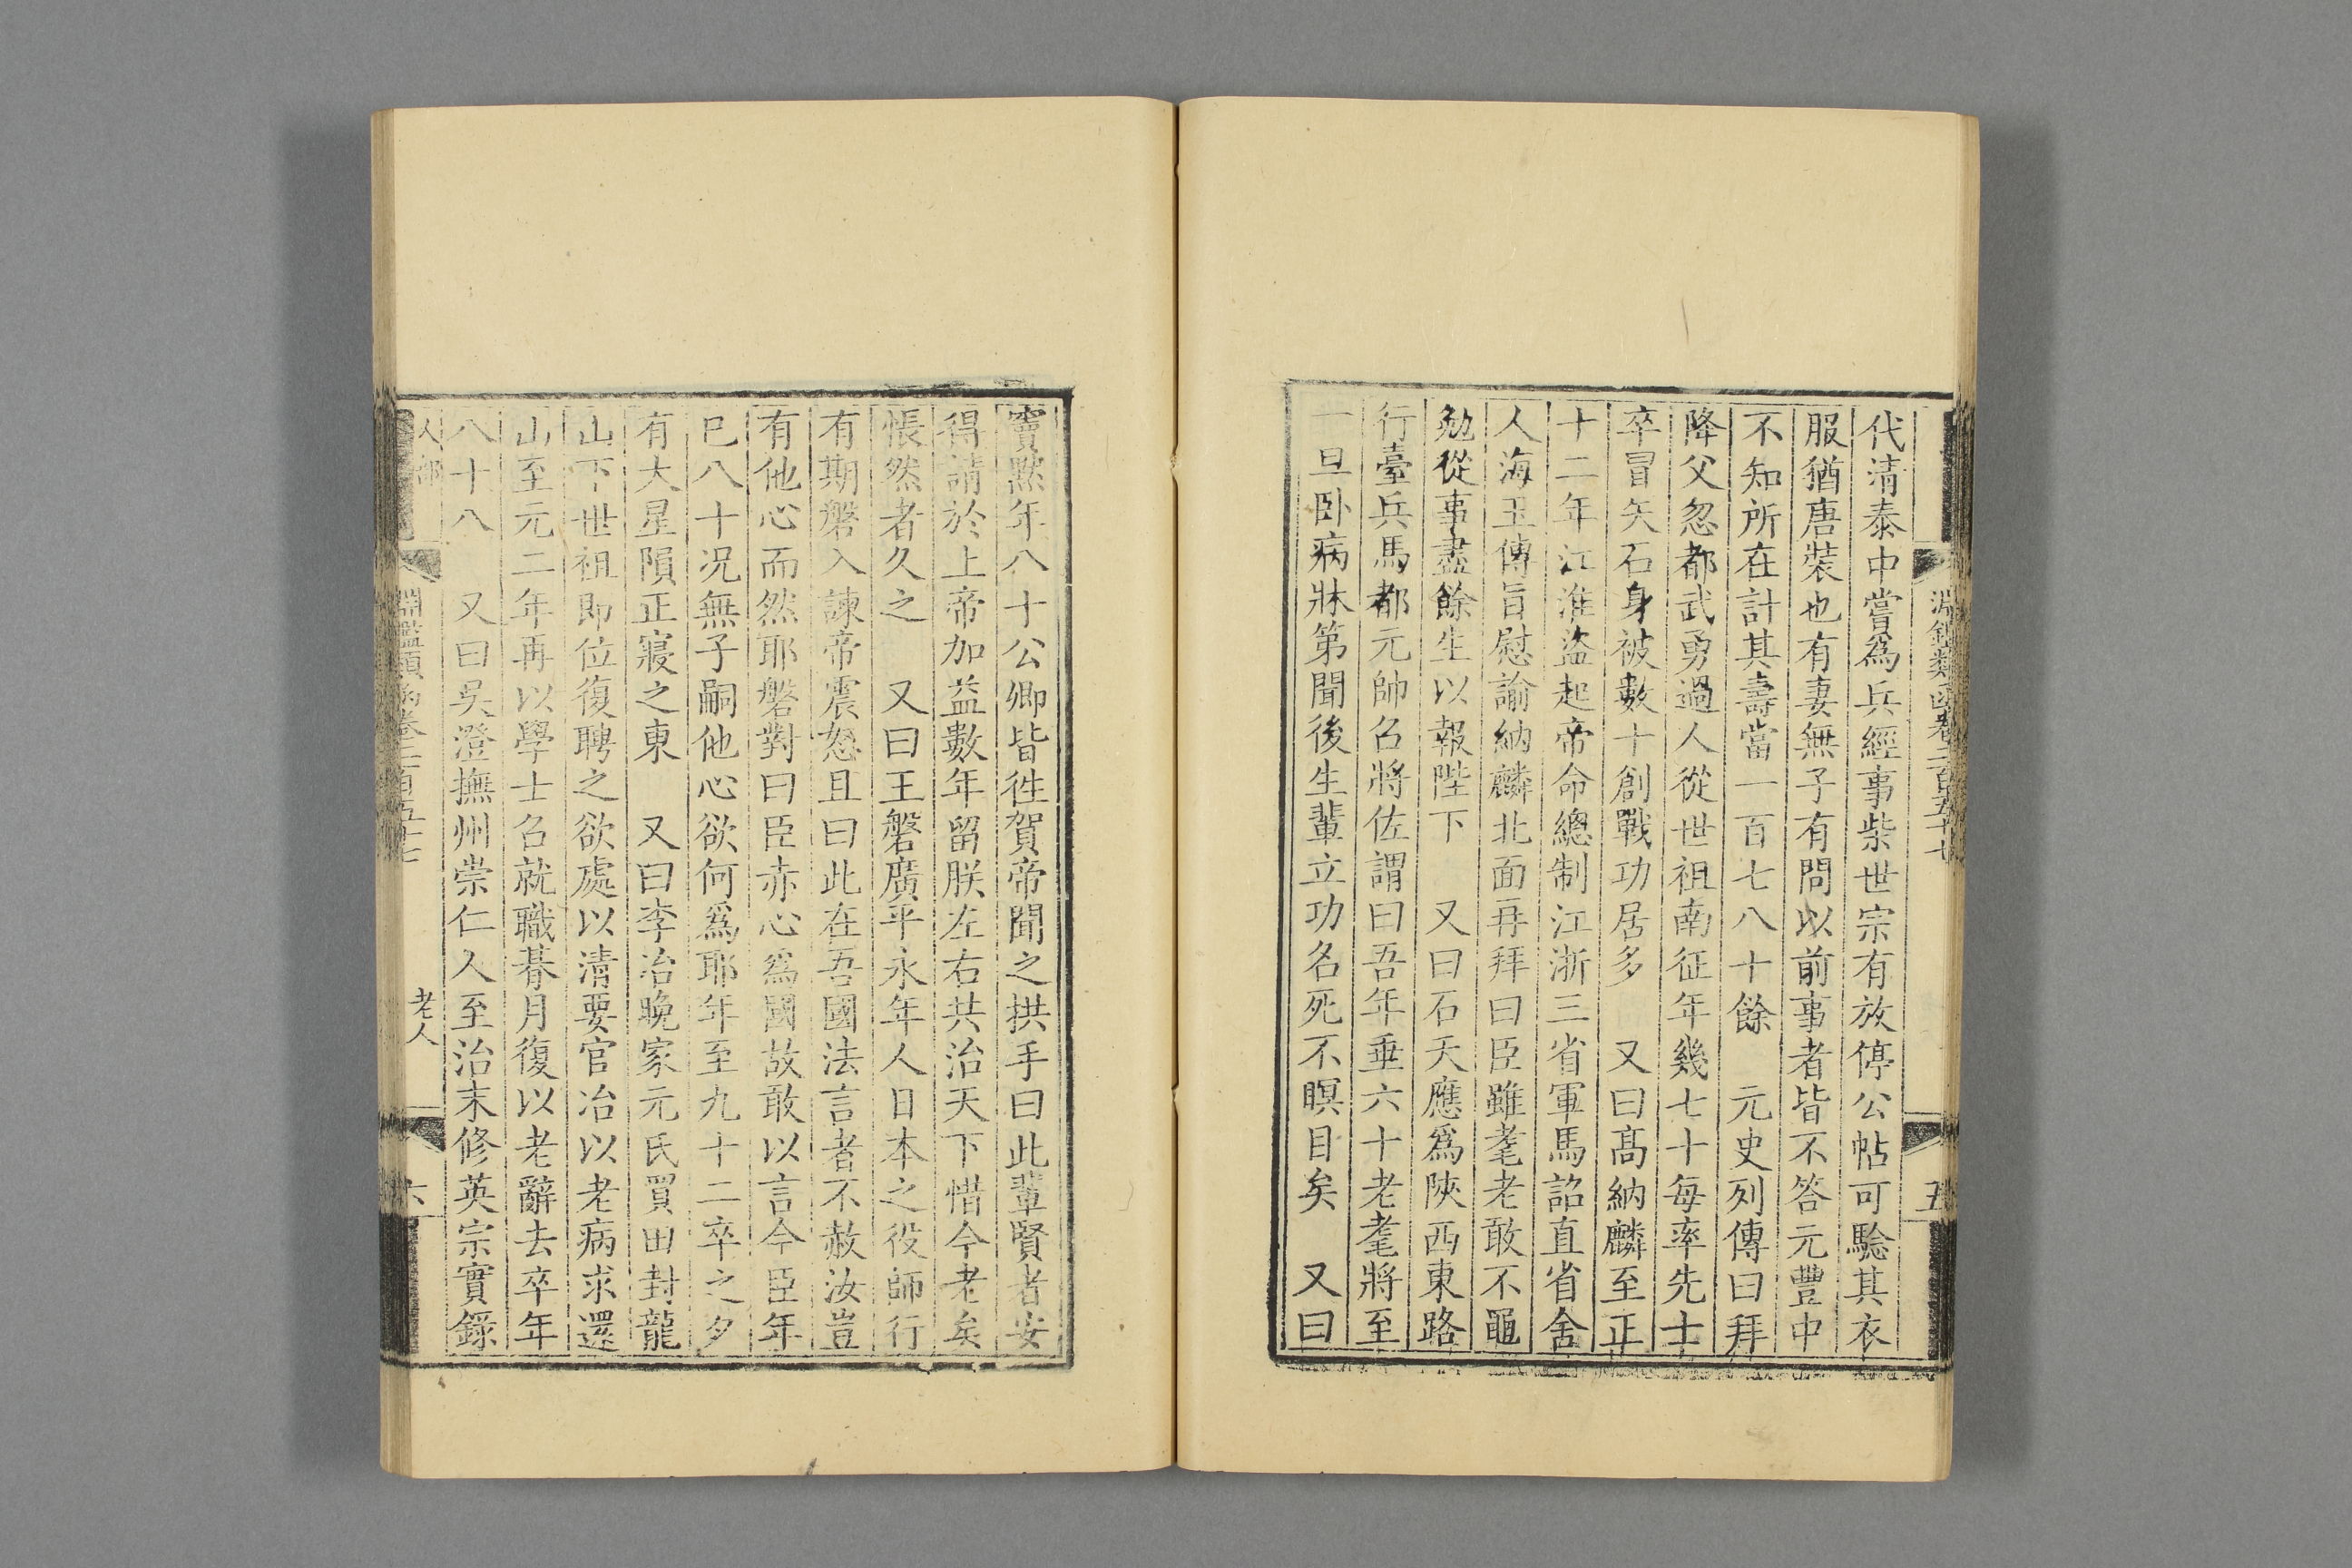 淵鑑類函卷二百五十七
五
代清泰中嘗爲兵經事柴世宗有放停公帖可驗其衣
服猶唐裝也有妻無子有問以前事者皆不答元豐中
不知所在計其壽當一百七八十餘 元史列傳曰拜
降父忽都武勇過人從世祖南征年幾七十每率先士
卒冒矢石身被數十創戰功居多 又曰高納麟至正
十二年江淮盜起帝命總制江浙三省軍馬詔直省舍
人海玉傳旨慰諭納麟北面再拜曰臣雖耄老敢不黽
勉從事盡餘生以報陛下 又曰石天應爲陝西東路
行臺兵馬都元帥召將佐謂曰吾年垂六十老耄將至
一旦卧病牀第聞後生輩立功名死不瞑目矣 又曰
竇默年八十公卿皆徃賀帝聞之拱手曰此輩賢者安
得請於上帝加益數年留朕左右共治天下惜今老矣
悵然者久之 又曰王磐廣平永年人日本之役師行
有期磐入諫帝震怒且曰此在吾國法言者不赦汝豈
有他心而然耶磐對曰臣赤心爲國故敢以言今臣年
巳八十况無子嗣他心欲何爲耶年至九十二卒之夕
有大星隕正寢之東 又曰李冶晚家元氏買田封龍
山下世祖即位復聘之欲處以清要官冶以老病求還
山至元二年再以學士召就職朞月復以老辭去卒年
八十八 又曰吳澄撫州崇仁人至治末修英宗實錄
人部
淵鑑類函卷二百五十七
老人
六